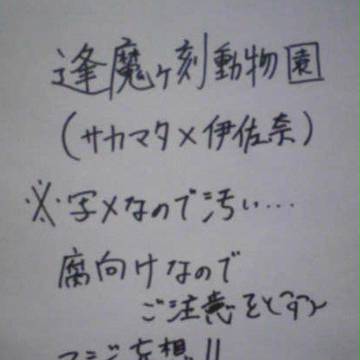 逢魔ヶ刻動物園
(サカマタ×伊佐奈)
※写メなので汚い…
腐向けなので
ご注意を